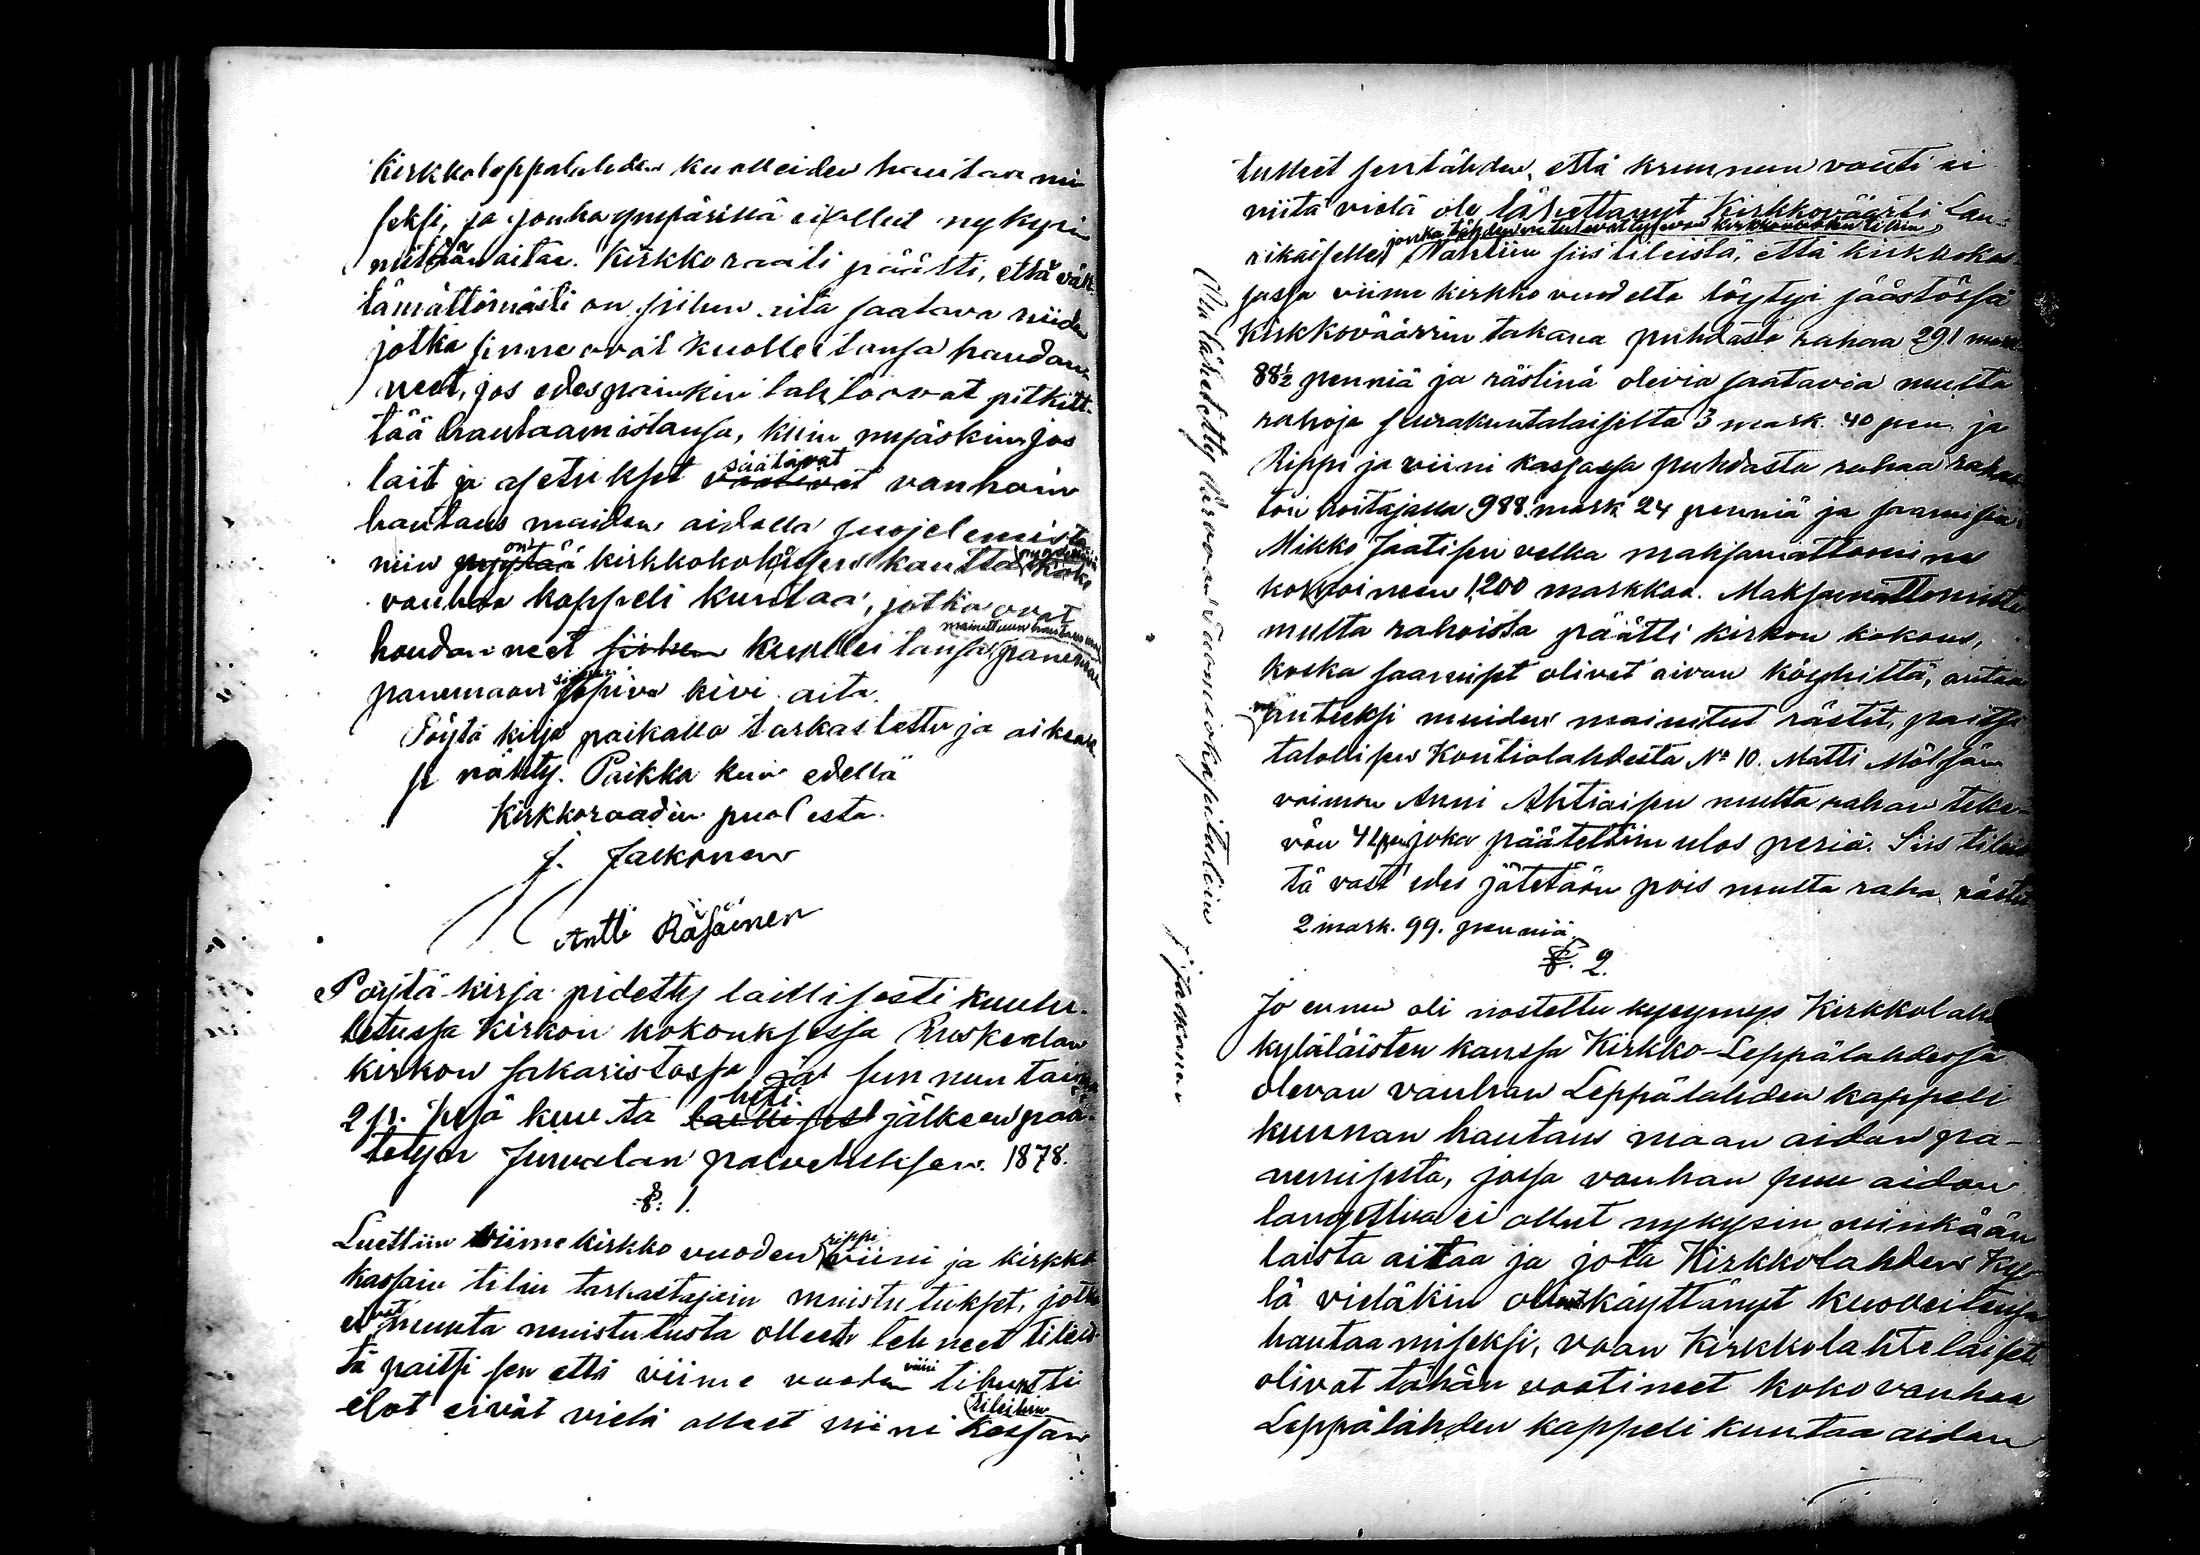 Kirkkoleppälahden kuolleiden hautaami
seksi, ja jonka ympärillä ei ollut nykysin
mitään aitaa. Kirkkoraati päätti, että vält-
tämättömästi on siihen aita saatava niiden
jotka sinne ovat kuolleitansa haudan-
neet, jos edespäinkin tahtoovat pitkitt-
tää hautaamistansa, kuin myöskin jos
lait ja asetukset säätävät vanhoin
hautaus maiden aidalla suojelemista
niin on kirkkokokouksen kautta koko
vanhaa kappeli kuntaa, jotka ovat
haudanneet kuolleitansa
panemaan siihen sopiva kivi aita.
Pöytä kirja paikalla tarkastettu ja oikeak
si nähty. Paikka kuin edellä
Kirkkoraadin puolesta.
J. Jaakkonen
Antti Räsäinen
Pöytä-kirja pidetty laillisesti kuulu-
tetussa Kirkon kokouksessa Ruskealan
kirkon sakaristossa sunnuntaina
2 p. kesä kuuta heti jälkeen pää-
tetyn Jumalan palveluksen. 1878.
§. 1.
Luettiin viime kirkko vuoden rippi viini ja kirkko
kassain tilin tarkastajain muistutukset, jotka
eivät muuta muistutusta olleet tehneet tileis-
tä paitsi sen että viime vuoden viini tihunti
elot eivät vielä olleet viini kassan tileihin
tulleet sentähden, että kruunun vouti ei
niitä vielä ole lähettänyt Kirkkoväärti Lau-
jonka tähden ne tulevat tulevan kirkkovuoden tiliin
rikaiselle. Nähtiin siis tileistä, että kirkkokas-
sassa viime kirkko vuodelta löytyi säästössä
Kirkkoväärrin takana puhdasta rahaa 291 mark
88½ penniä ja rästinä olevia saatavia multa
rahoja seurakuntalaisilta 3 mark. 40 pen. ja
Rippi ja viini kassassa puhdasta rahaa rahas-
ton hoitajalla 988 mark 24 penniä ja
Mikko Jaatisen velka maksamattomine
korkoineen 1,200 markkaa. Maksamattomista
multa rahoista päätti kirkon kokous,
koska saamiset olivat aivan köyhiltä, antaa
anteeksi muiden mainitut rästit, paitsi
talollisen Kontiolahdesta No 10. Matti Mölsän
vaimon Anni Ahtiaisen multa rahan teke-
vän 41 pen joka päätettiin ulos periä. Siis tileis-
tä vast'edes jätetään pois multa raha rästiä
2 mark. 99. penniä.
§. 2.
Jo ennen oli nostettu kysymys Kirkkolahden
kyläläisten kanssa Kirkko-Leppälahdessa
olevan vanhan Leppälahden kappeli
kunnan hautaus maan aidan pa-
nemisesta, jossa vanhan puu aidan
langettua ei ollut nykysin minkään
laista aitaa ja jota Kirkkolahden ky-
lä vieläkin oli käyttänyt kuolleitensa
hautaamiseksi, vaan Kirkkolahtelaiset
olivat tähän vaatineet koko vanhaa
Leppälahden kappeli kuntaa aidan
lähetetty Arvoan Tuomiokapituliin
J. Jaakkonen